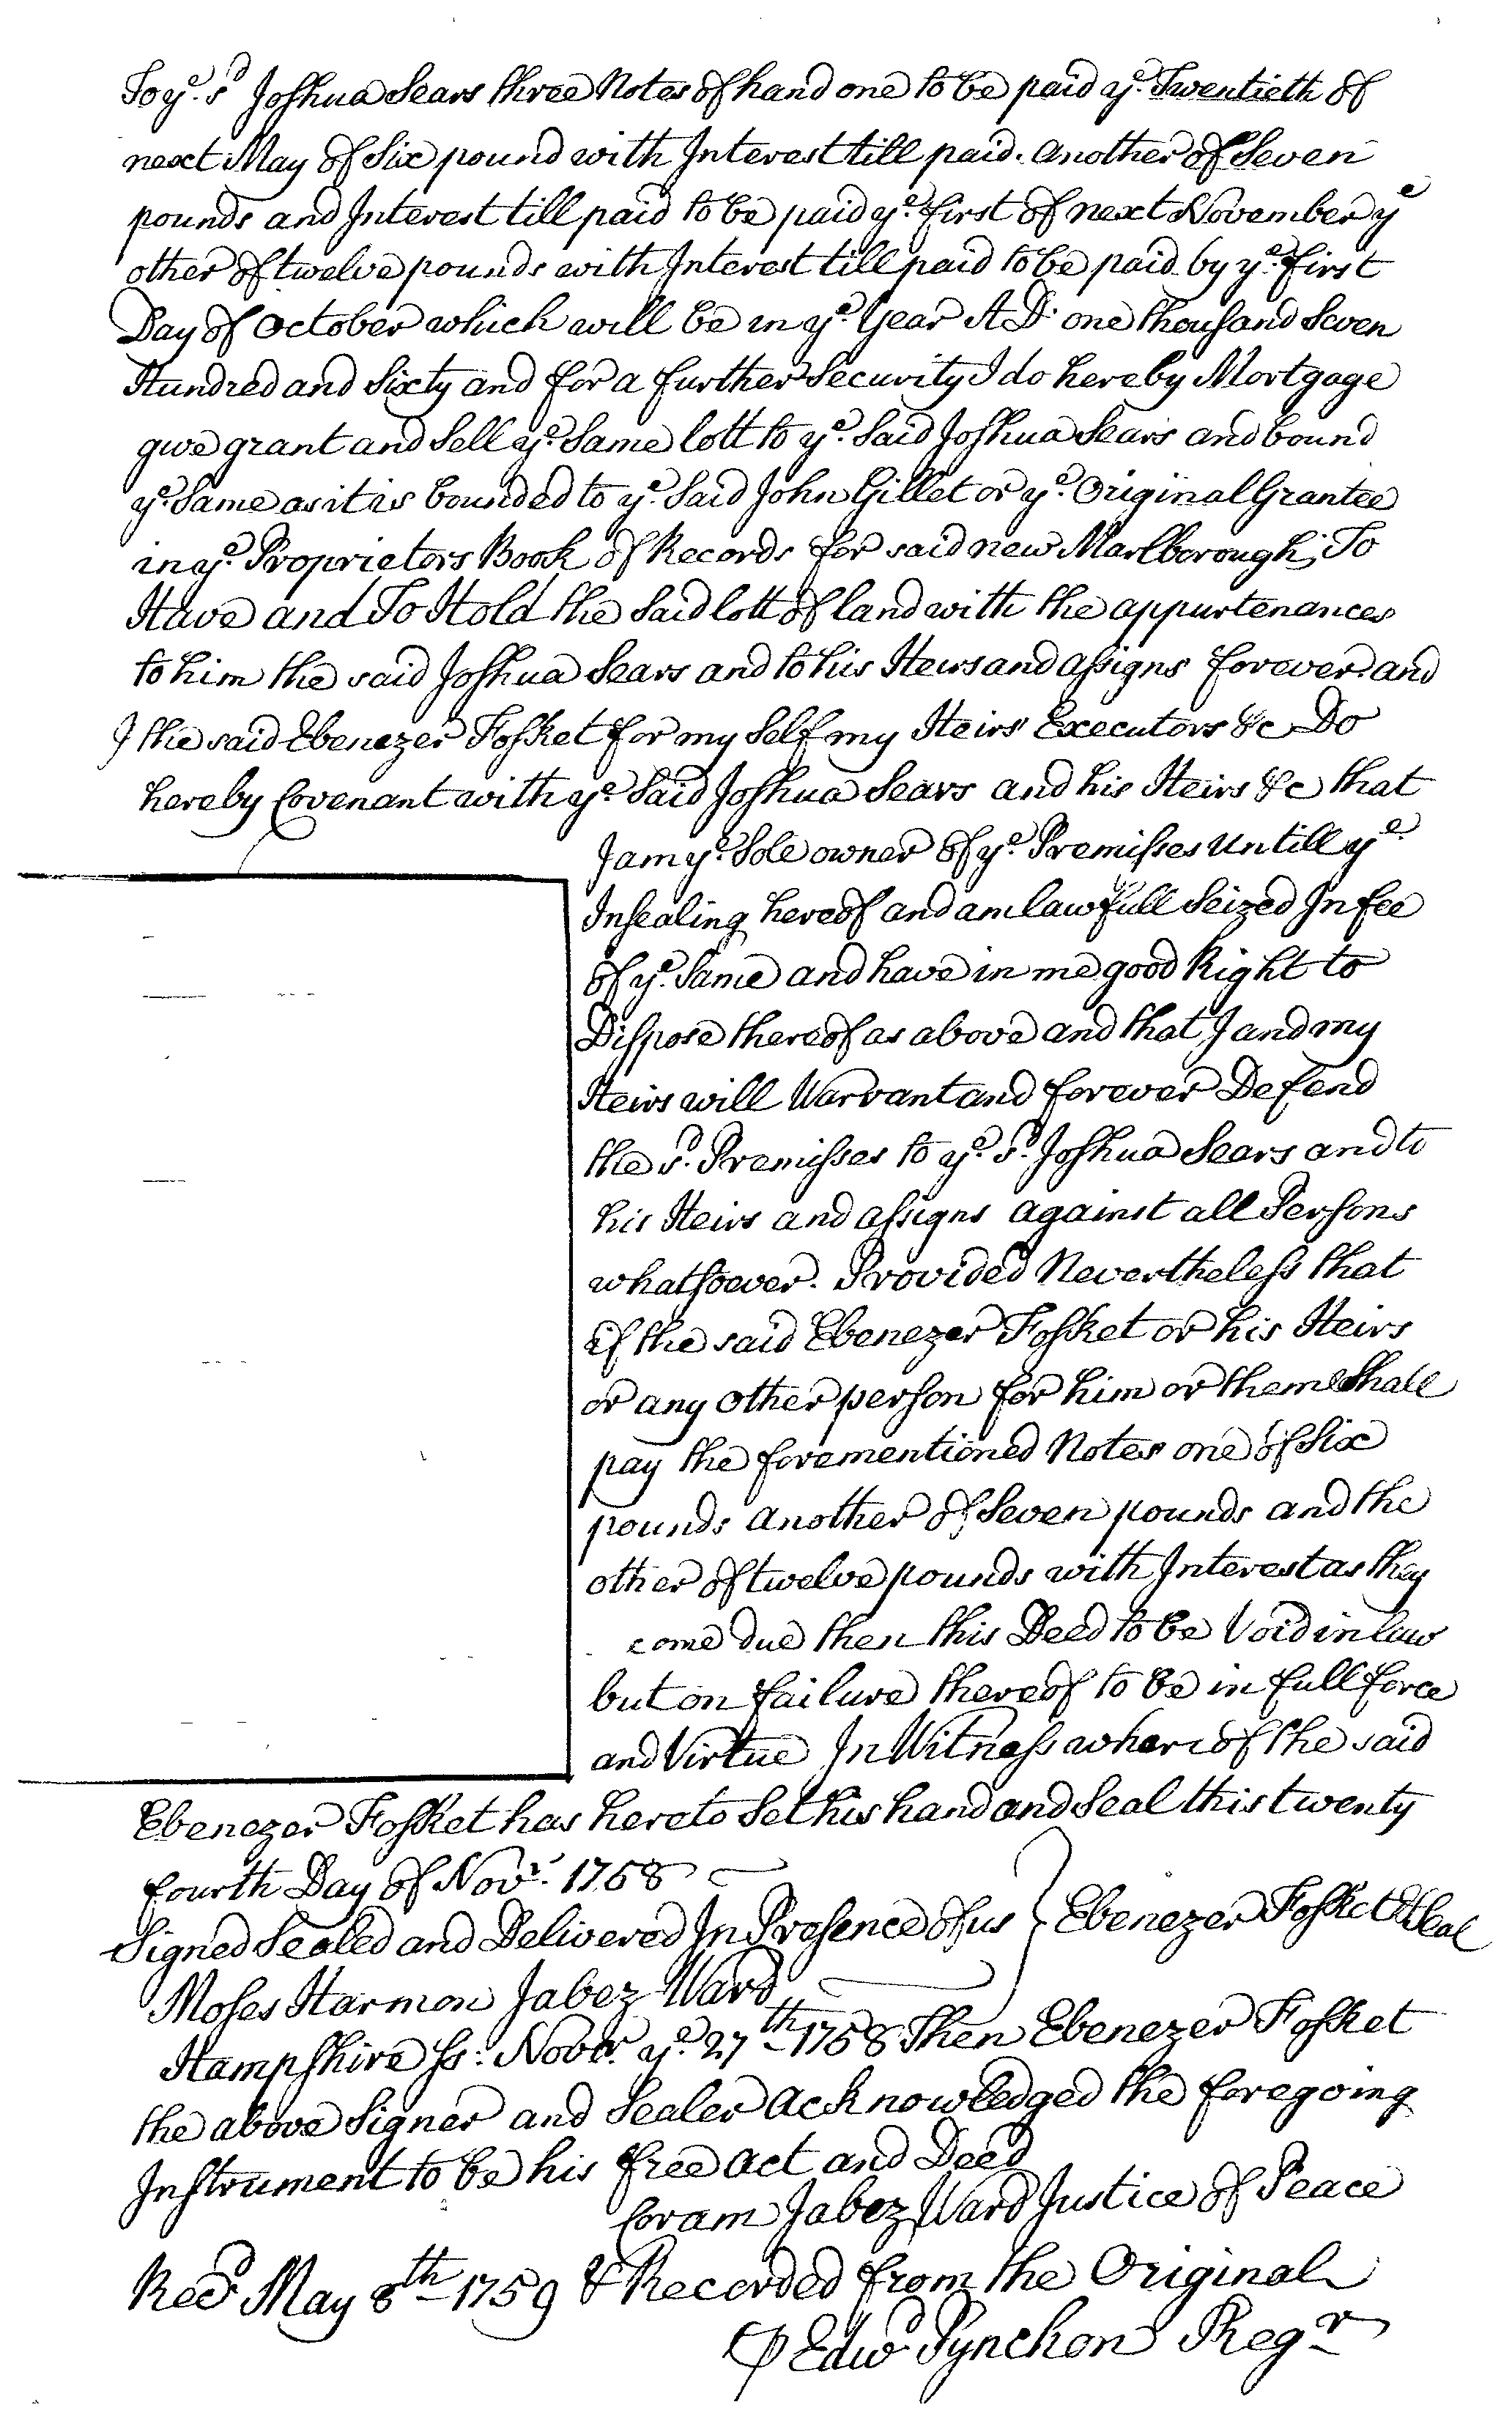 To yᵉ. sᵈ Joshua Sears three Notes of hand one to be paid yᵉ. Twentieth of
next May of Six pound with Interest till paid. another of Seven
pounds and Interest till paid to be paid yᵉ. first of next November yᵉ
other of twelve pounds with Interest till paid to be paid by yᵉ. first
Day of October which will be in yᵉ. Year A D. one thousand Seven
Hundred and Sixty and for a further Security I do hereby Mortgage
give grant and Sell yᵉ. Same lott to yᵉ. Said Joshua Sears and bound
yᵉ. Same as it is bounded to yᵉ. Said John Gillet or yᵉ. Original Grantee
in yᵉ. Proprietors Book of Records for said new Marlborough; To
Have and To Hold the Said lott of land with the appurtenances
to him the said Joshua Sears and to his Heirs and assigns forever and
I the said Ebenezer Fosket for my Self my Heirs Executors &c Do
hereby Covenant with yᵉ. Said Joshua Sears and his Heirs &c that
I am yᵉ. Sole owner of yᵉ. Premisses Untill yᵉ.
Insealing hereof and am lawfull Seized In fee
of yᵉ. Same and have in me good Right to
Dispose thereof as above and that I and my
Heirs will Warrant and forever Defend
the sᵈ. Premisses to yᵉ. sᵈ. Joshua Sears and to
his Heirs and assigns against all Persons
whatsoever. Provided Nevertheless that
if the said Ebenezer Fosket or his Heirs
or any other person for him or them Shall
pay the forementioned Notes one of Six
pounds another of Seven pounds and the
other of twelve pounds with Interest as they
come due then this Deed to be Void in law
but on failure thereof to be in full force
and Virtue In Witness whereof the said
Ebenezer Fosket has hereto Set his hand and Seal this twenty
fourth Day of Novʳ. 1758
Signed Sealed and Delivered In Presence of us } Ebenezer Fosket & Seal
Moses Harmon Jabez Ward
Hampshire ss: Novbʳ. yᵉ. 27ᵗʰ 1758 Then Ebenezer Fosket
the above Signer and Sealer acknowledged the foregoing
Instrument to be his free act and Deed
Coram Jabez Ward Justice of Peace
Recᵈ May 8ᵗʰ 1759 & Recorded from the Original
⅌ Edwᵈ Pynchon Regʳ